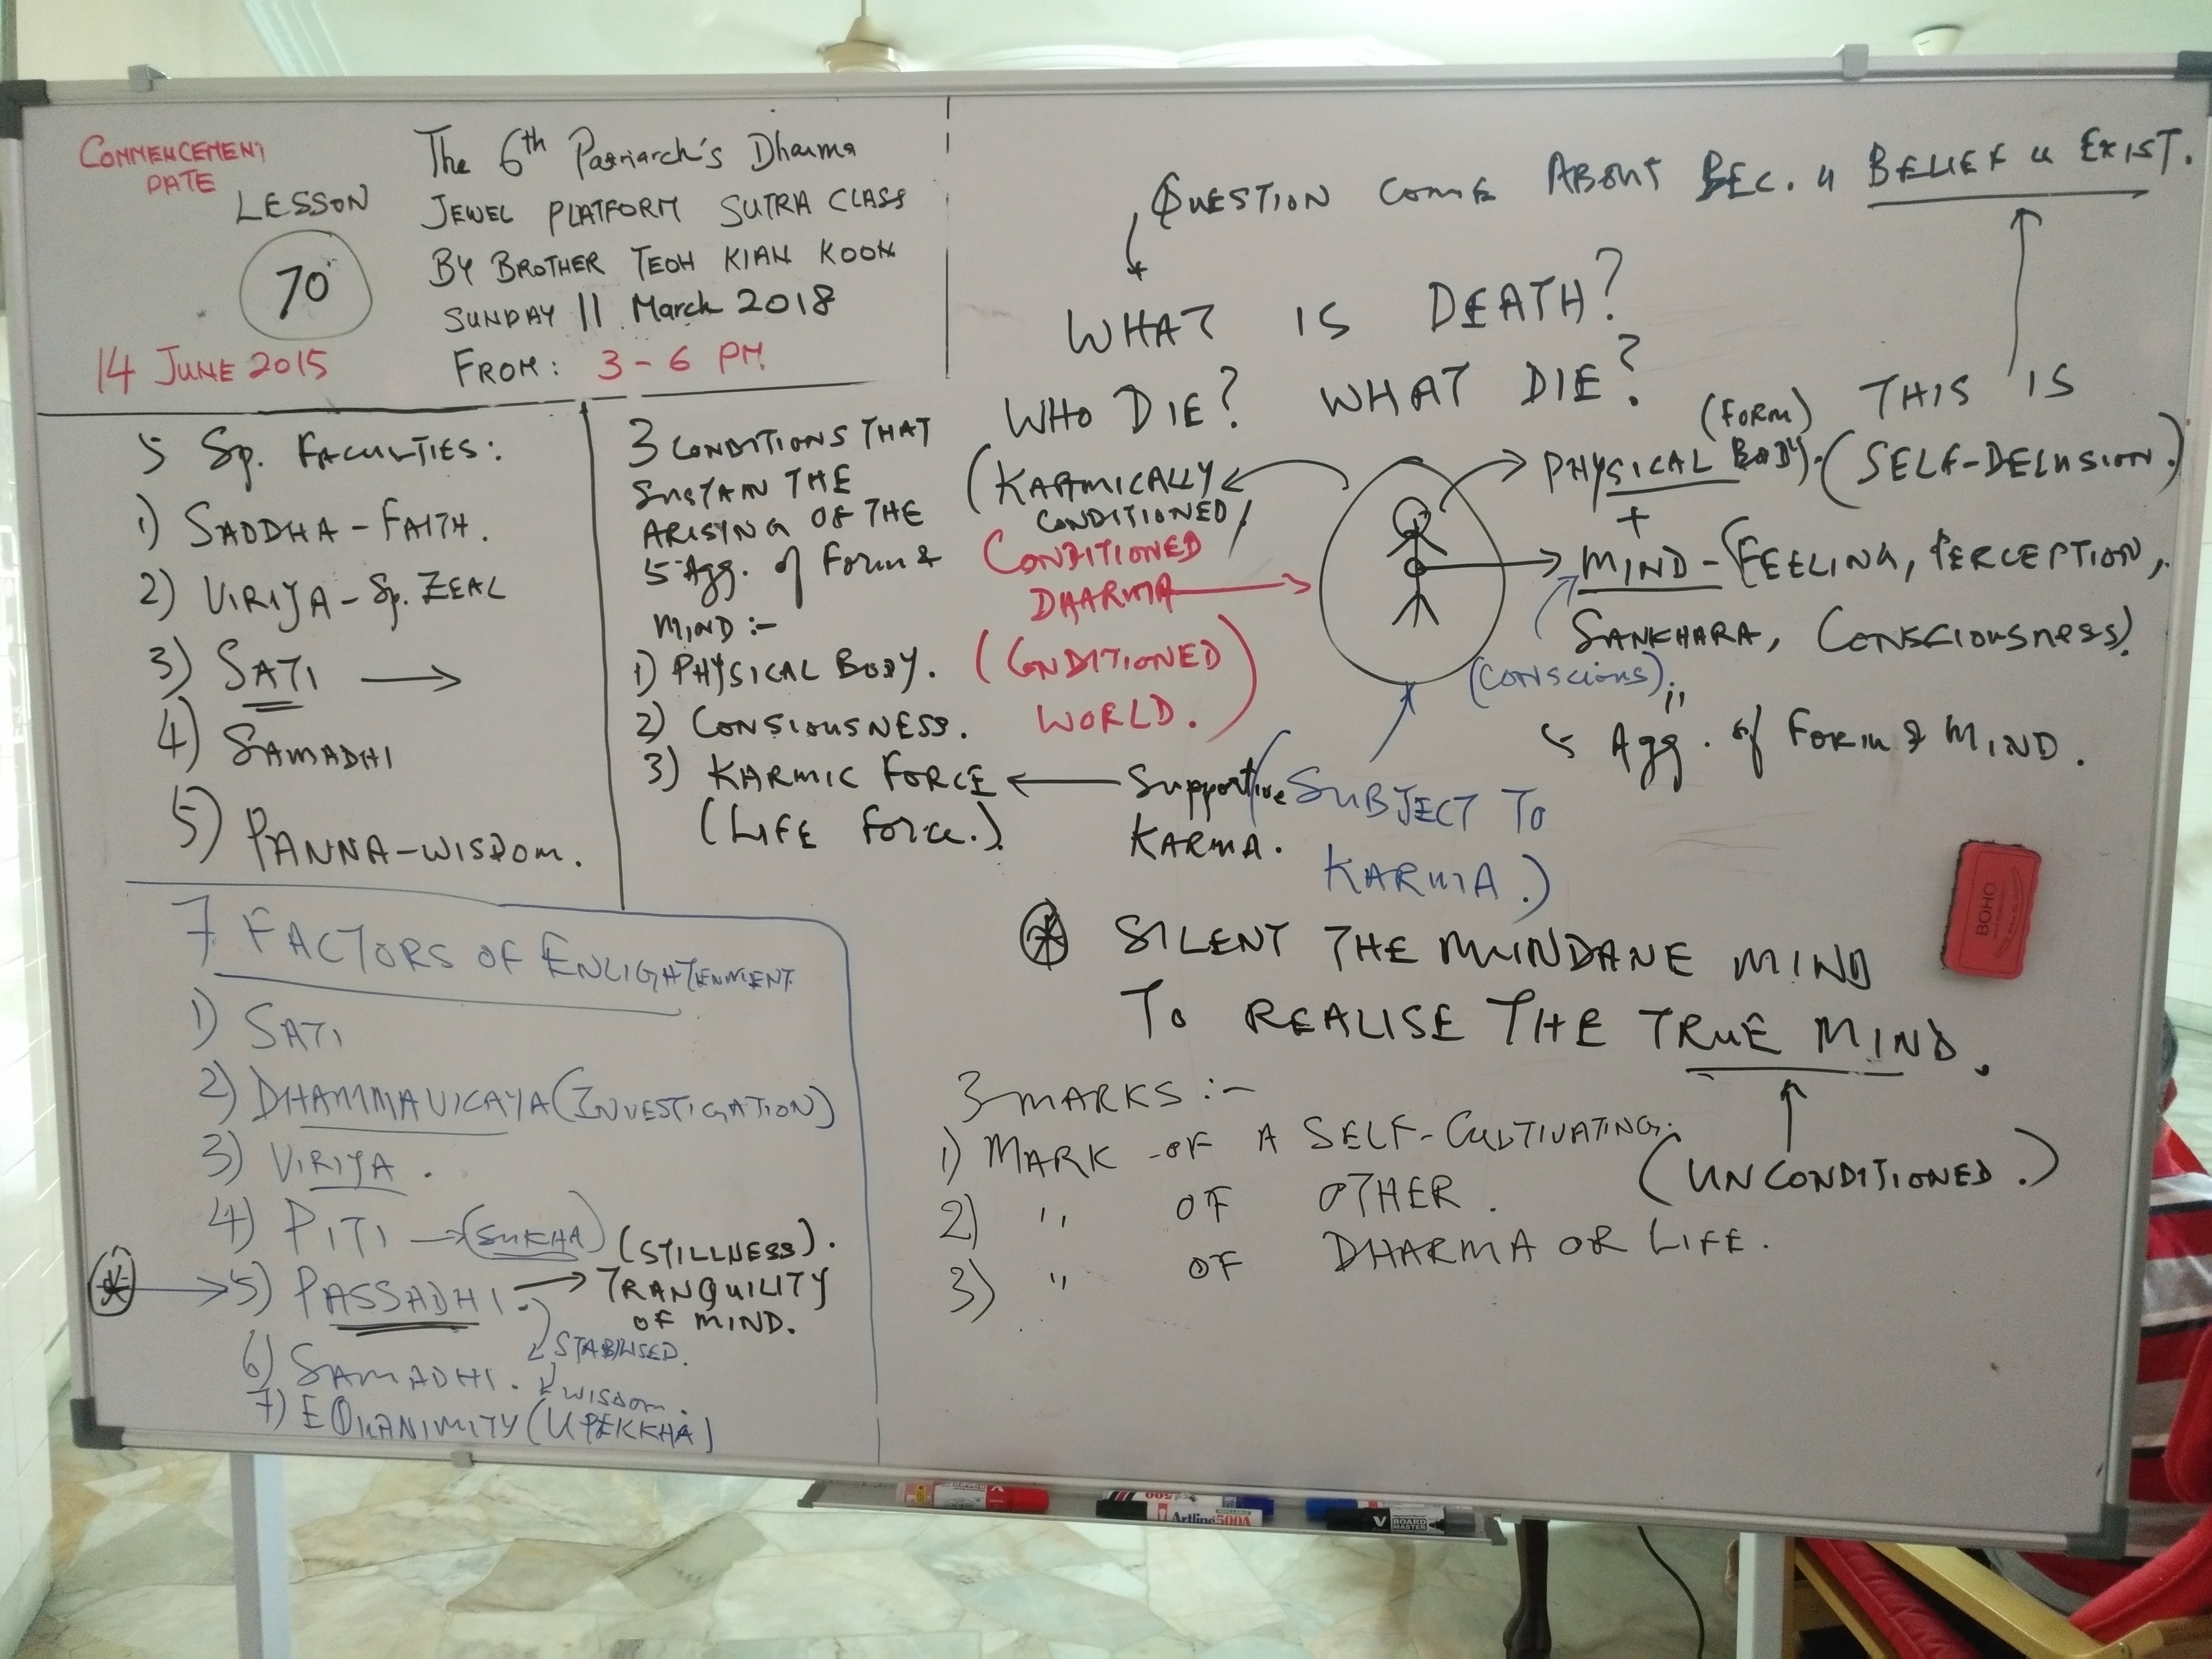 COMMENCEMENT
DATE
LESSON
70
14 JUNE 2015
The 6th Patriarch's Dharma
JEWEL PLATFORM SUTRA CLASS
BY BROTHER TEOH KIAN KOON
SUNDAY 11 March 2018
FROM: 3-6 PM
5 Sp. FACULTIES:
1) SADDHA - FAITH.
2) VIRIYA - Sp. ZEAL
3) SATI →
4) SAMADHI
5) PANNA - WISDOM.
3 CONDITIONS THAT
SUSTAIN THE
ARISING OF THE
5 Agg. of Form &
MIND :-
1) PHYSICAL BODY.
2) CONSIOUSNESS.
3) KARMIC FORCE ← Supportive
(LIFE Force.) KARMA.
7 FACTORS OF ENLIGHTENMENT
1) SATI
2) DHAMMAVICAYA (INVESTIGATION)
3) VIRIYA.
4) PITI → (SUKHA) (STILLNESS).
5) PASSADHI. → TRANQUILITY
OF MIND.
STABILISED.
6) SAMADHI.
WISDOM.
7) EQUANIMITY (UPEKKHA)
QUESTION COME ABOUT BEC. " BELIEF " EXIST.
WHAT IS DEATH?
WHO DIE? WHAT DIE?
THIS IS
(SELF-DELUSION.)
(FORM)
PHYSICAL BODY.
+
MIND - (FEELING, PERCEPTION,
SANKHARA, CONSCIOUSNESS)
(CONSCIOUS)
"
5 Agg. of Form & MIND.
(KARMICALLY
CONDITIONED)
CONDITIONED
DHARMA →
(CONDITIONED
WORLD.)
(SUBJECT TO
KARMA.)
* SILENT THE MUNDANE MIND
TO REALISE THE TRUE MIND.
(UNCONDITIONED.)
3 MARKS :-
1) MARK OF A SELF-CULTIVATING.
2) " OF OTHER.
3) " OF DHARMA OR LIFE.
BOHO
500
Artline 500A
V BOARD MASTER